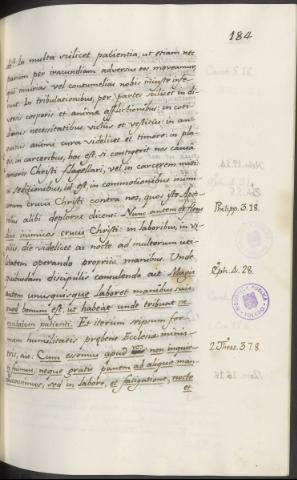 184
In multa scilicet patientia, ut etiam nec
patrum per iracundiam adversus eos moveamur,
qui minas vel contumelias nobis
runt. In tribulationibus, per partes scilicet in di-
versis corporis et animae afflictionibus: in coti-
dianis necessitatibus, victus et vestitus: in an-
gustiis animi cura videlicet et timore: in pla-
gis, in carceribus, hoc est, si contigerit nos causa
amoris Christi flagellari, vel in carcerem mitti
Seditionibus, id est, in commotionibus inimi-
corum crucis Christi contra nos, quos iste Apos-
tolus alibi deplorat dicens: Nunc autem et flens
dico inimicos crucis Christi: in laboribus, in vi-
giliis die videlicet ac nocte ad multorum uti-
litatem operando propriis manibus. Unde
quibusdam discipulis consulendo ait. Magis
autem unusquisque laboret manibus suis
quod bonum est, ut habeat unde tribuat ne-
cessitatem patienti. Et iterum seipsum for-
mam humilitatis praebens Ecclesiae minis-
tris, ait: Cum essemus apud vos non inquie-
ti fuimus; neque gratis panem ab aliquo man-
ducavimus, sed in labore, et fatigatione, nocte
et
Philipp. 3.18.
Eph. 4. 28.
2 Thess. 3.7.8.